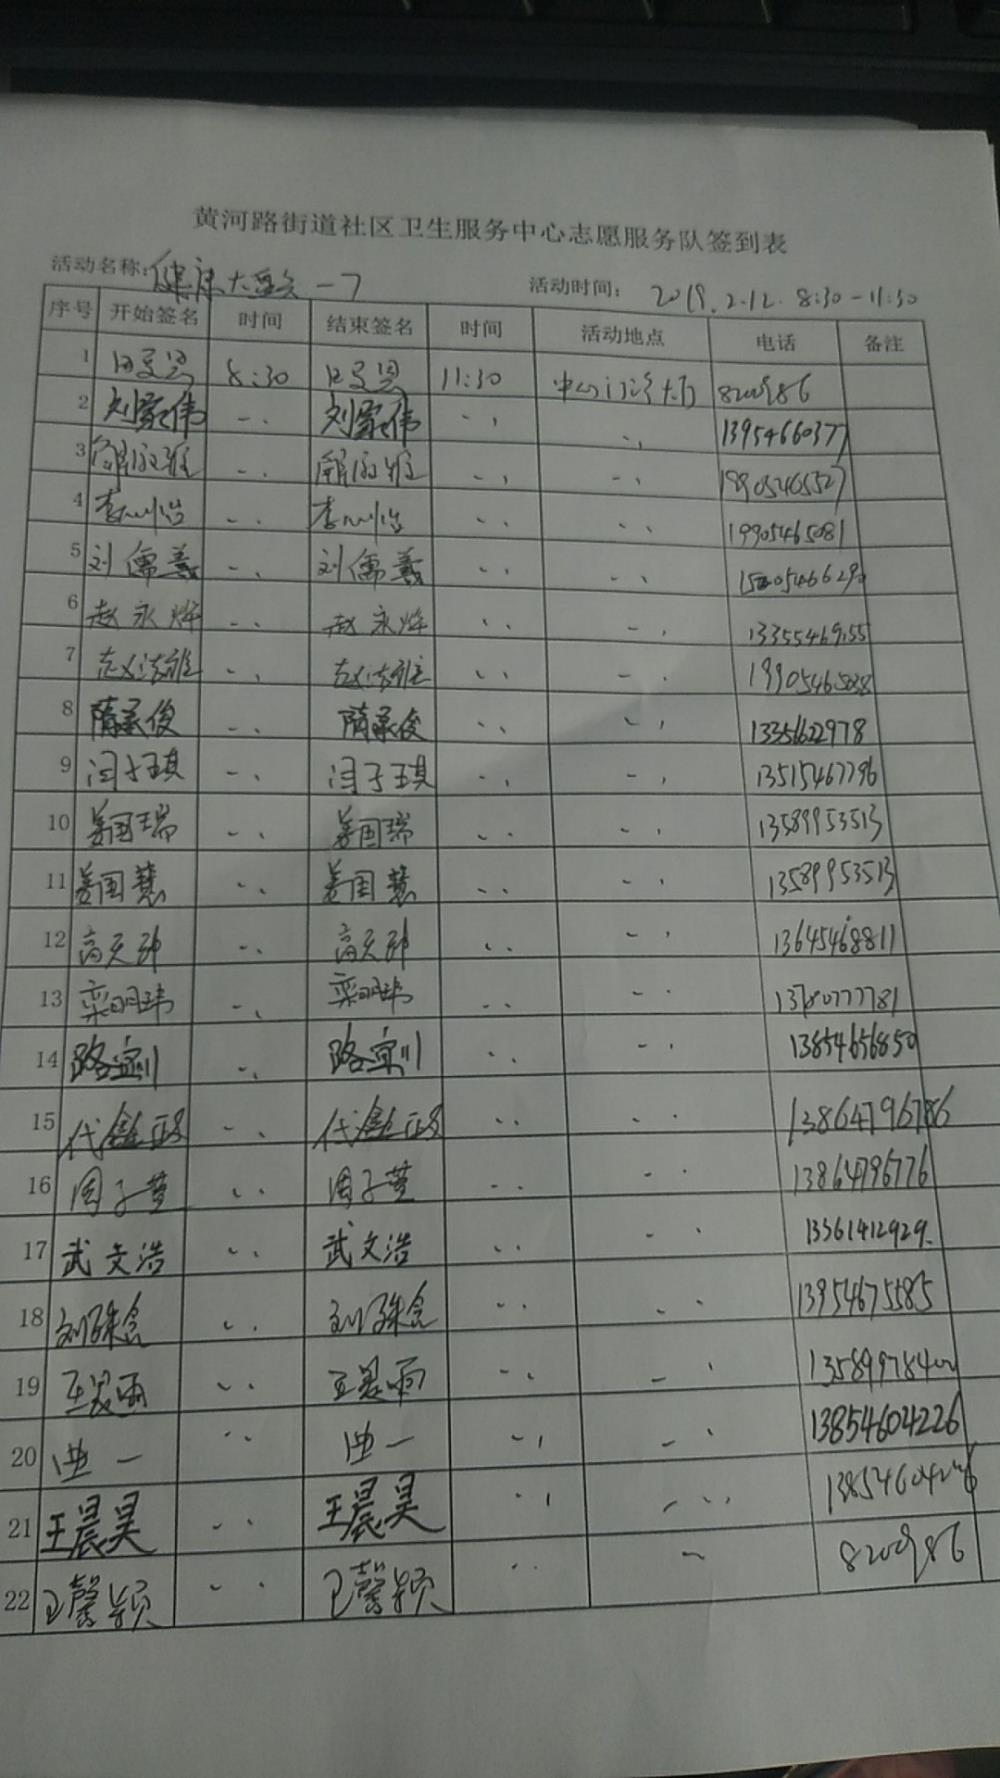 黄河路街道社区卫生服务中心志愿服务队签到表
活动名称: 健康大 一7 活动时间: 2019.2.12. 8:30-11:30
序号 开始签名 时间 结束签名 时间 活动地点 电话 备注
1 8:30 11:30 中心门诊大厅 8200986
2 刘家伟 刘家伟 13954660377
3 18905465527
4 李 李 19905465081
5 刘儒羲 刘儒羲
6 赵永烨 赵永烨 13355469155
7 赵法雅 赵法雅
8 隋承俊 隋承俊 13351622978
9 闫子琪 闫子琪 13515467796
10 姜国瑞 姜国瑞 13589953513
11 姜国慧 姜国慧 13589953513
12 高天 高天 13645468811
13 栾明玮 栾明玮 13780777781
14 路宜川 路宜川 13854656850
15 代鑫 代鑫 13864796786
16 周子萱 周子萱 13864796776
17 武文浩 武文浩 13361412929
18 刘 刘 13954675585
19 13589978400
20 曲一 曲一 13854604226
21 王晨昊 王晨昊 13854604226
22 王馨颖 王馨颖 8200986